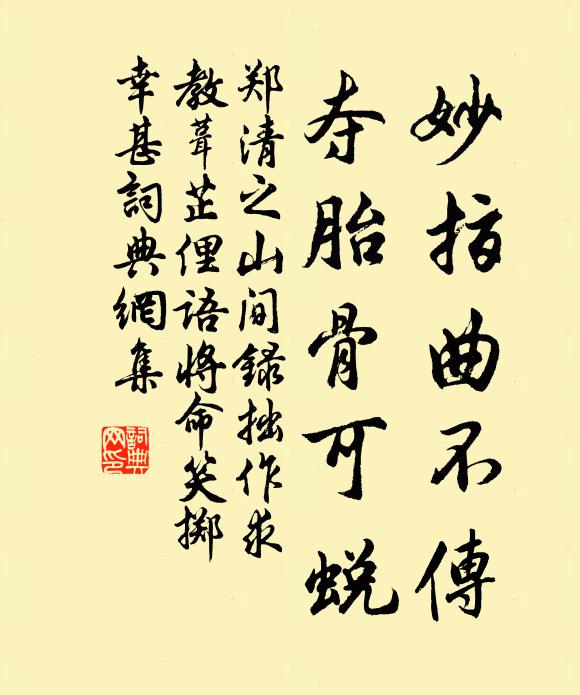 妙指曲不傳
夺胎骨可蜕
郑清之山间録拙作求
教葺芷俚语将命笑掷
幸甚詞典網集
詞典
网印